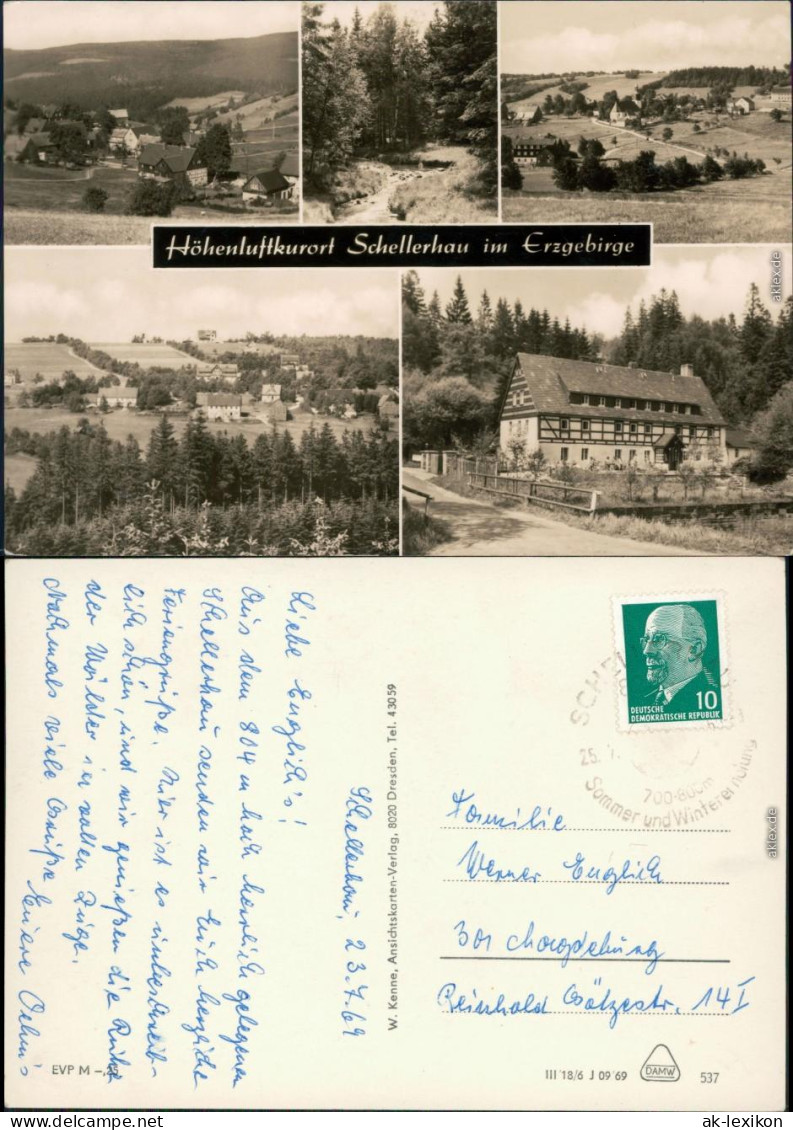 Höhenluftkurort Schellerhau im Erzgebirge
aklex.de
Schellerhau, 23.7.69
Liebe Englich's!
Aus dem 804 m hoch herrlich gelegenen
Schellerhau senden wir Euch herzliche
Feriengrüße. Hier ist es unbeschreib-
lich schön, und wir genießen die Ruhe
der Wälder in vollen Züge.
Nochmals viele Grüße Euere Oehm's
EVP M –,25
W. Kenne, Ansichtskarten-Verlag, 8020 Dresden, Tel. 43059
10
DEUTSCHE
DEMOKRATISCHE REPUBLIK
25.
700-800m
Sommer und Wintererholung
Familie
Werner Englich
301 Magdeburg
Reinhold Götzestr. 14 I
III 18/6 J 09 69
DAMW
537
aklex.de
www.delcampe.net
ak-lexikon